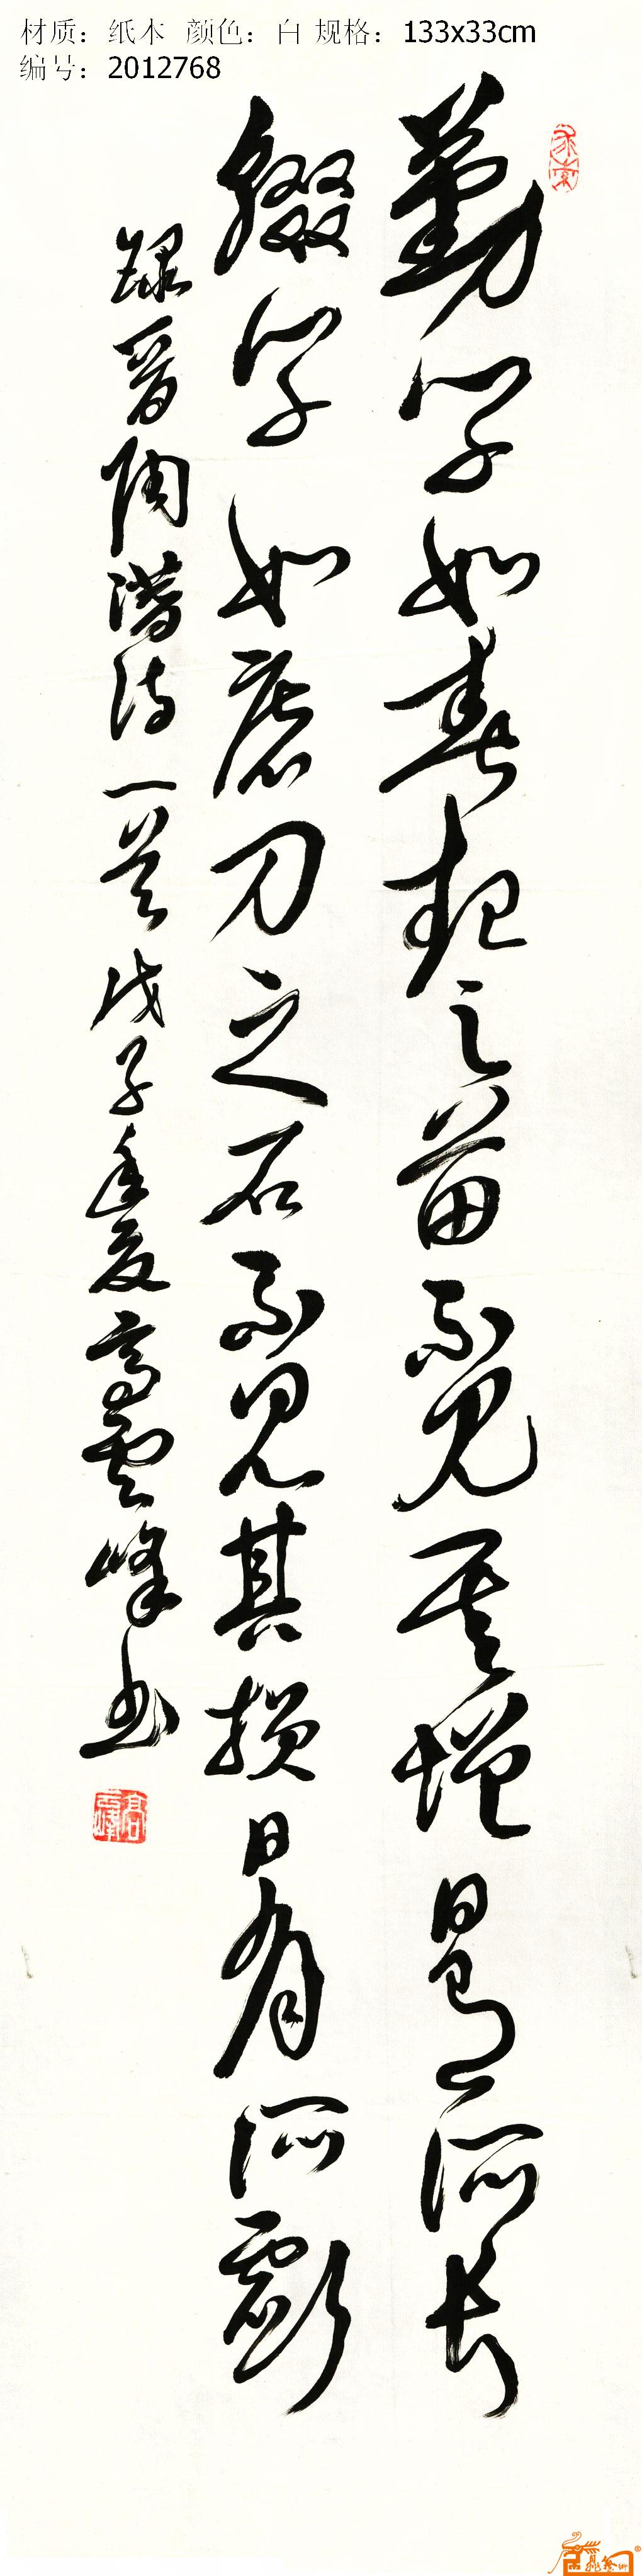 材质：纸本 颜色：白 规格：133x33cm
编号：2012768
勤学如春起之苗不见其增日有所长
辍学如磨刀之石不见其损日有所亏
録晋陶潜诗一首戊子年夏高云峰书